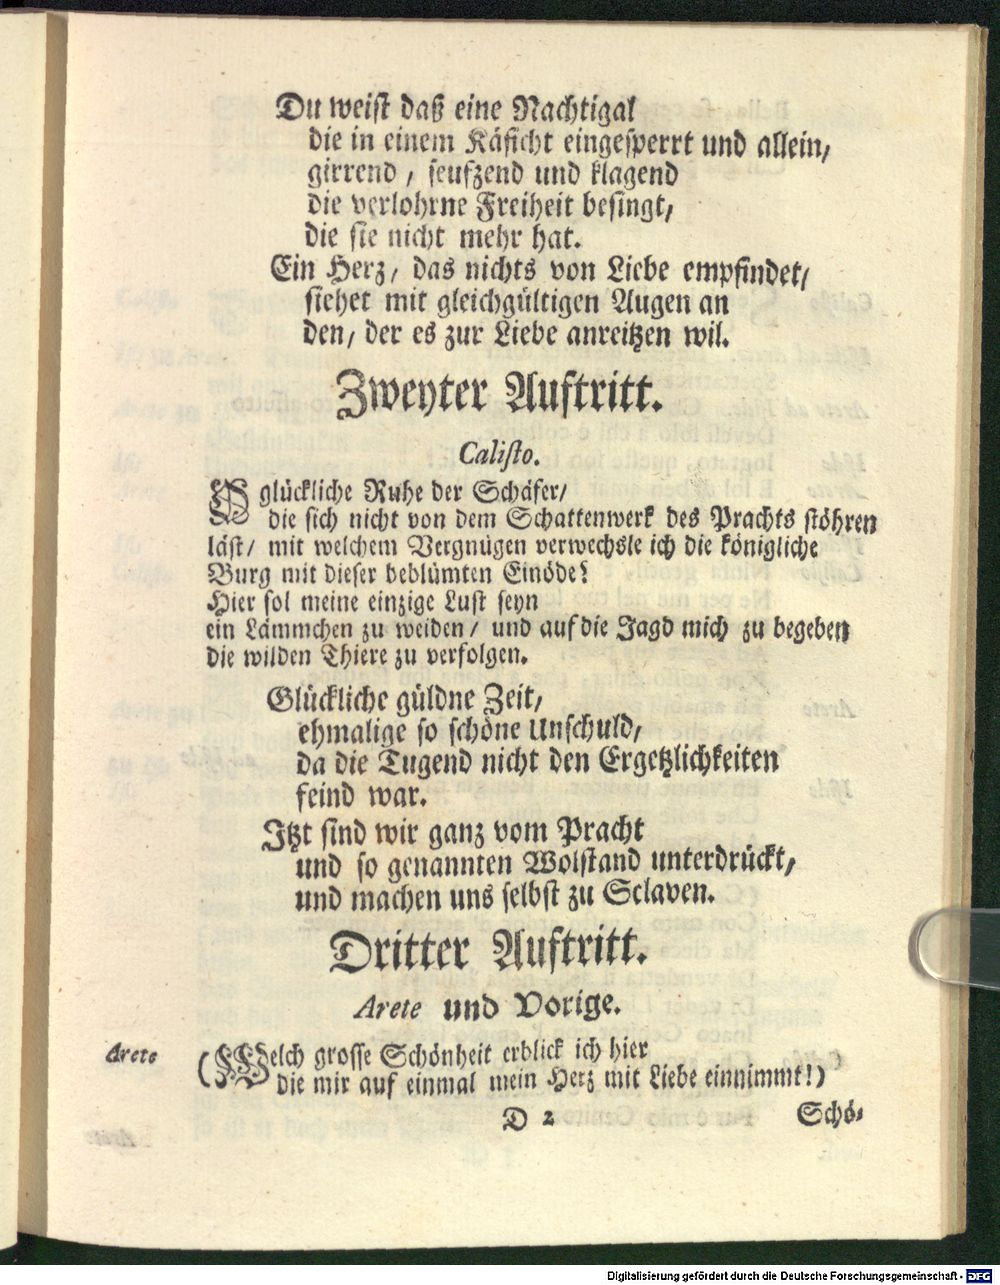 Du weist daß eine Nachtigal
die in einem Käficht eingesperrt und allein/
girrend / seufzend und klagend
die verlohrne Freiheit besingt/
die sie nicht mehr hat.
Ein Herz/ das nichts von Liebe empfindet/
siehet mit gleichgültigen Augen an
den/ der es zur Liebe anreitzen wil.
Zweyter Auftritt.
Calisto.
O glückliche Ruhe der Schäfer/
die sich nicht von dem Schattenwerk des Prachts stöhren
läst/ mit welchem Vergnügen verwechsle ich die königliche
Burg mit dieser beblümten Einöde!
Hier sol meine einzige Lust seyn
ein Lämmchen zu weiden/ und auf die Jagd mich zu begeben
die wilden Thiere zu verfolgen.
Glückliche güldne Zeit/
ehmalige so schöne Unschuld/
da die Tugend nicht den Ergetzlichkeiten
feind war.
Jtzt sind wir ganz vom Pracht
und so genannten Wolstand unterdrückt/
und machen uns selbst zu Sclaven.
Dritter Auftritt.
Arete und Vorige.
Arete (Welch grosse Schönheit erblick ich hier
die mir auf einmal mein Herz mit Liebe einnimmt!)
D 2 Schö-
Digitalisierung gefördert durch die Deutsche Forschungsgemeinschaft - DFG